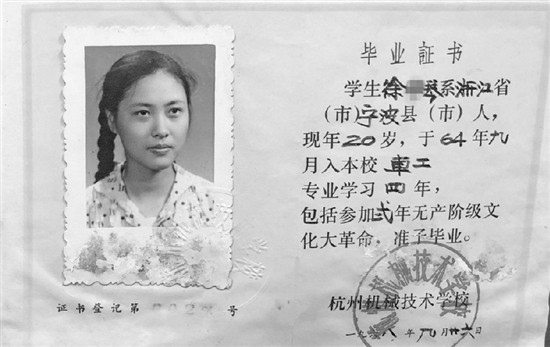 毕业証书
学生徐 系浙江省
(市)宁波县(市)人,
现年20岁,于64年九
月入本校 車工
专业学习四年,
包括参加弍年无产阶级文
化大革命,准予毕业。
杭州机械技术学校
一九六八年九月廿六日
证书登记第 号